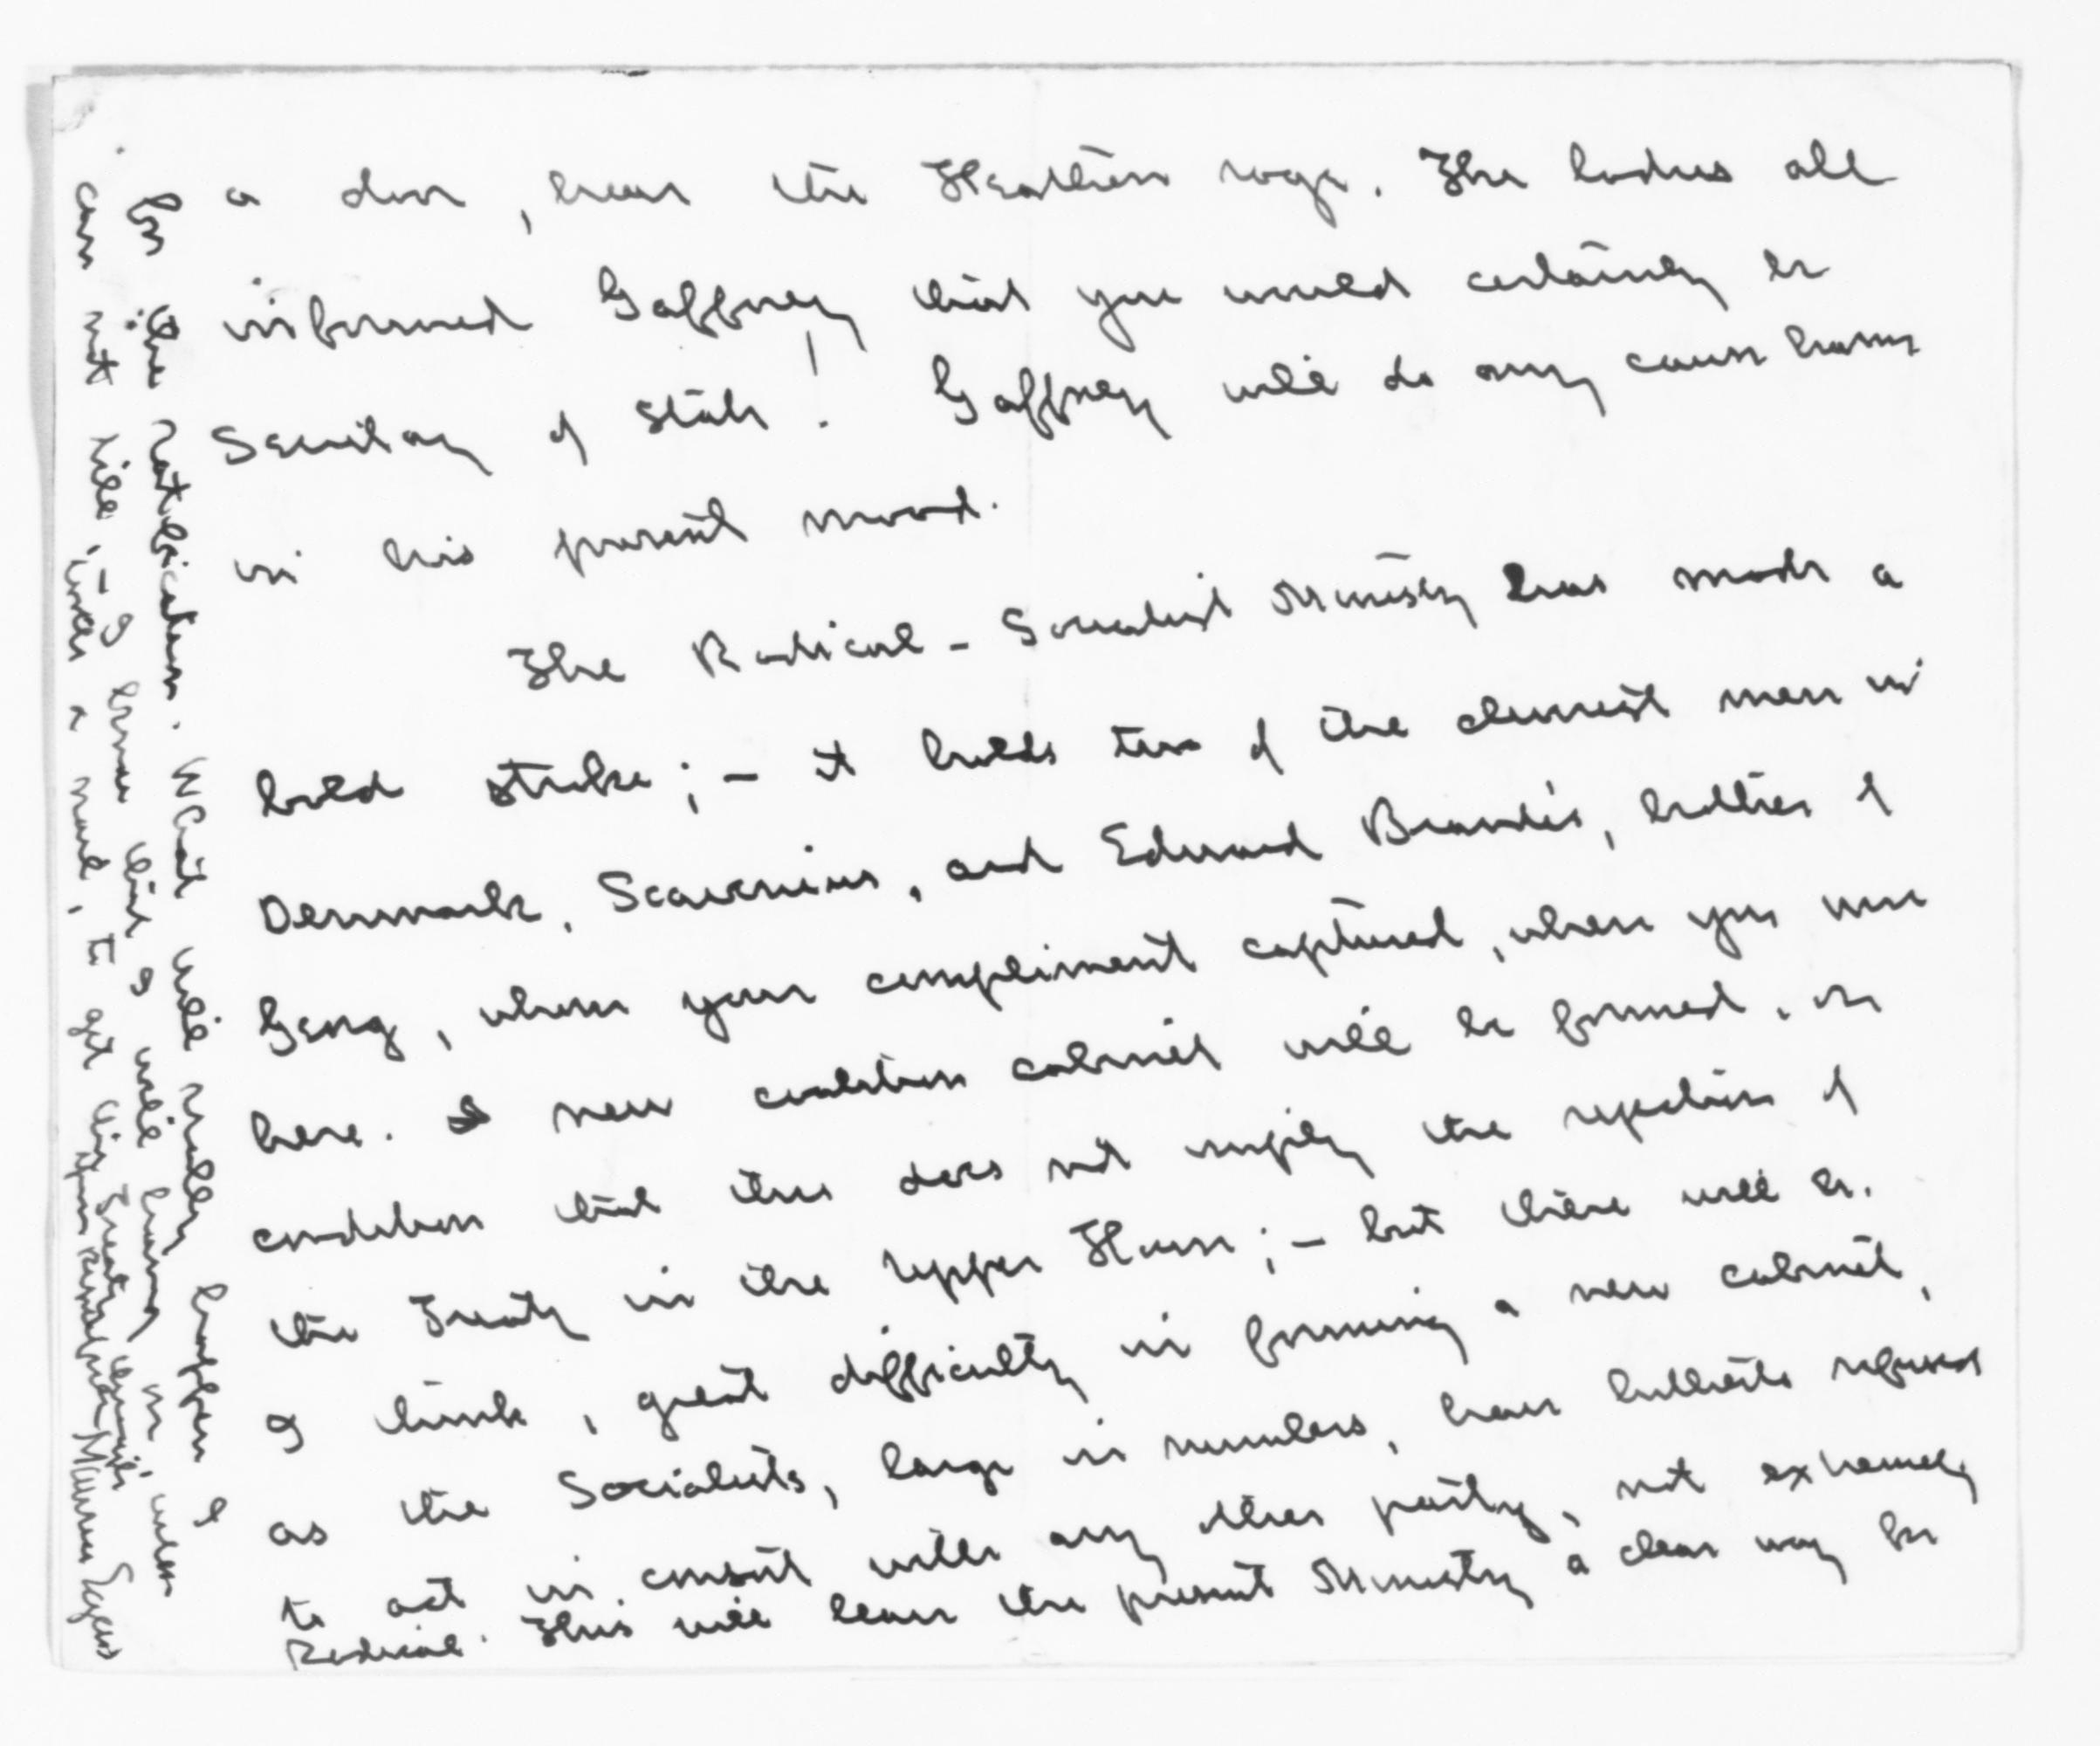 a door, hear the Heathen rage. The ladies all
informed Gaffney that you would certainly be
Secretary of State! Gaffney will do any cause harm
in his present mood.
The Radical-Socialist Ministry has made a
bold stroke;- it holds two of the cleverest men in
Denmark, Scavenius, and Edward Brandès, brother of
Georg, whom your compliment captured, when you were
here. A new coalition cabinet will be formed, on
condition that this does not imply the rejection of
the Treaty in the Upper House;- but there will be,
I think, great difficulty in forming a new cabinet,
as the Socialists, large in numbers, have hitherto refused
to act in consort with any other party, not extremely
Radical. This will leave the present Ministry a clear way for
for the ratification. What will really happen I
can not tell;- I know that I will hang on, even
by a nail, to get this Treaty through.
Yours respectfully Maurice Egan